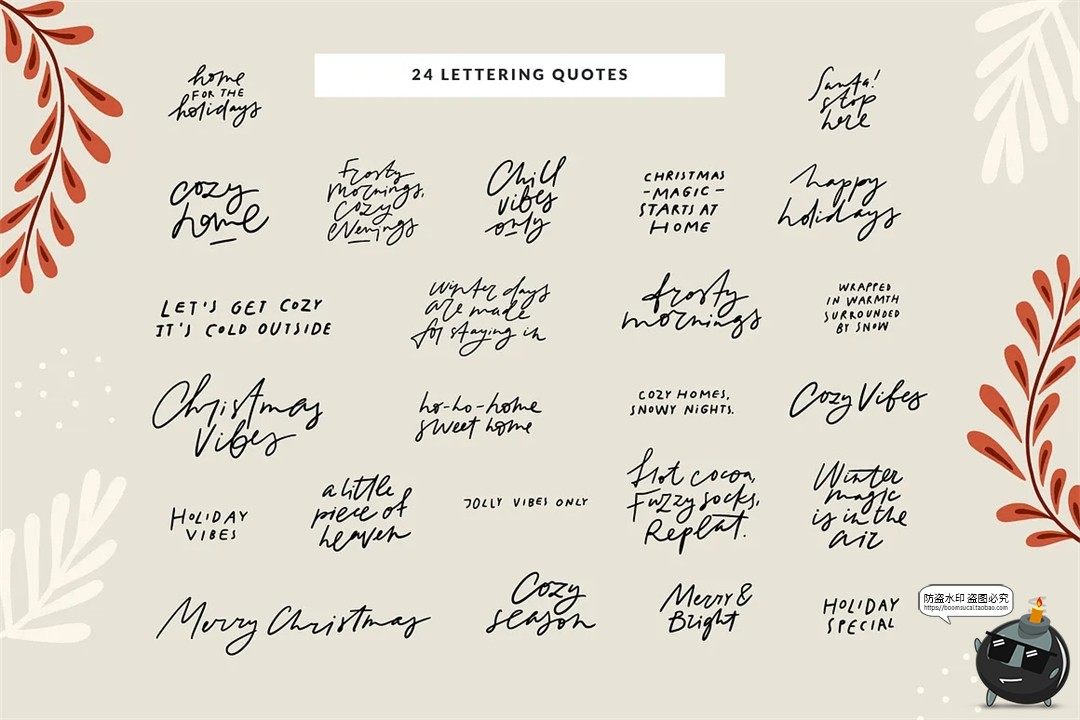 24 LETTERING QUOTES
home
FOR THE
holidays
Santa!
stop
here
cozy
home
Frosty
mornings,
Cozy
evenings
Chill
vibes
only
CHRISTMAS
-MAGIC-
STARTS AT
HOME
happy
holidays
LET'S GET COZY
IT'S COLD OUTSIDE
winter days
are made
for staying in
frosty
mornings
WRAPPED
IN WARMTH
SURROUNDED
BY SNOW
Christmas
Vibes
ho-ho-home
sweet home
COZY HOMES,
SNOWY NIGHTS.
Cozy Vibes
HOLIDAY
VIBES
a little
piece of
heaven
JOLLY VIBES ONLY
Hot cocoa,
Fuzzy socks,
Repeat.
Winter
magic
is in the
air
Merry Christmas
Cozy
season
Merry &
Bright
HOLIDAY
SPECIAL
防盗水印 盗图必究
https://boomsucai.taobao.com